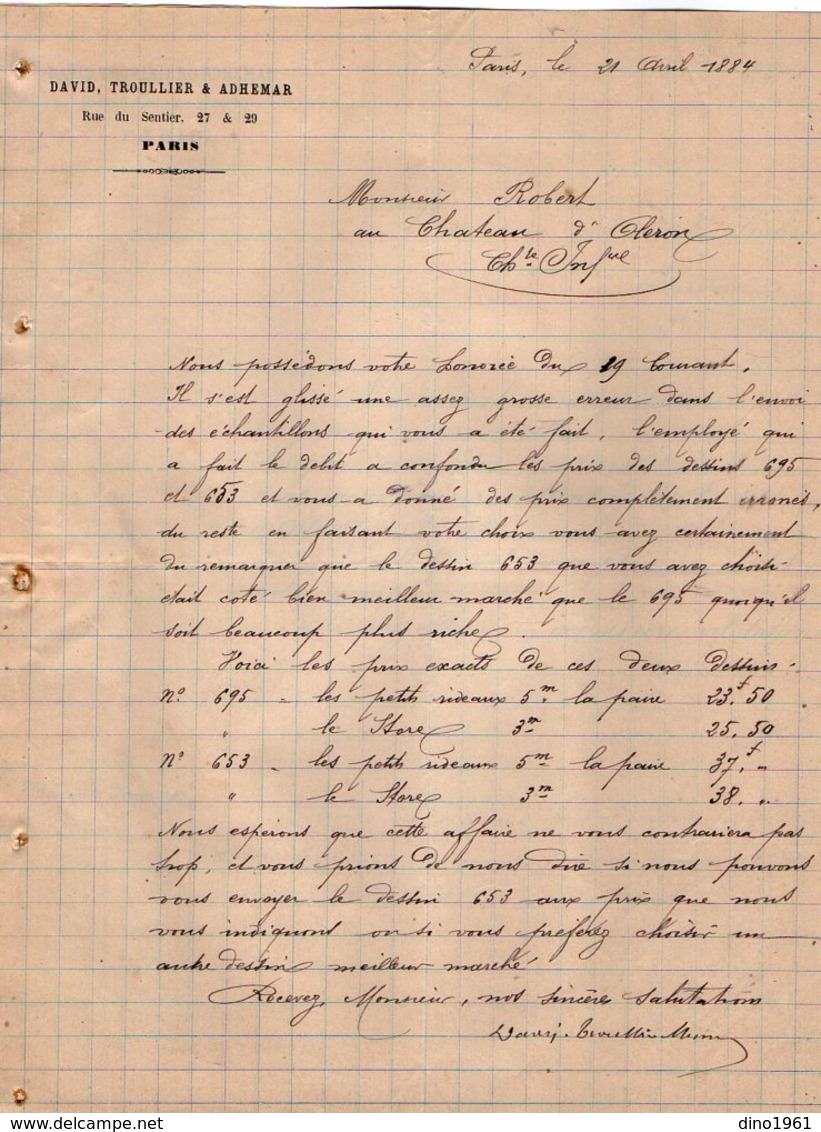 Paris, le 21 Avril 1884
DAVID, TROULLIER & ADHEMAR
Rue du Sentier, 27 & 29
PARIS
Monsieur Robert
au Chateau d'Oleron
Ch.te Inf.re
Nous possédons votre honorée du 19 Courant.
Il s'est glissé une assez grosse erreur dans l'envoi
des échantillons qui vous a été fait, l'employé qui
a fait le debit a confondu les prix des dessins 695
et 653 et vous a donné des prix complètement erronés,
du reste en faisant votre choix vous avez certainement
du remarquer que le dessin 653 que vous avez choisi
était coté bien meilleur marché que le 695 quoiqu'il
soit beaucoup plus riche.
Voici les prix exacts de ces deux dessins.
No. 695 - les petits rideaux 5m la paire 23.f 50
" le Store 3m 25. 50
No 653 - les petits rideaux 5m la paire 37.f "
" le Store 3m 38. "
Nous espérons que cette affaire ne vous contrariera pas
trop, et vous prions de nous dire si nous pouvons
vous envoyer le dessin 653 aux prix que nous
vous indiquons ou si vous préferez choisir un
autre dessin meilleur marché
Recevez, Monsieur, nos sincères salutations
dino1961